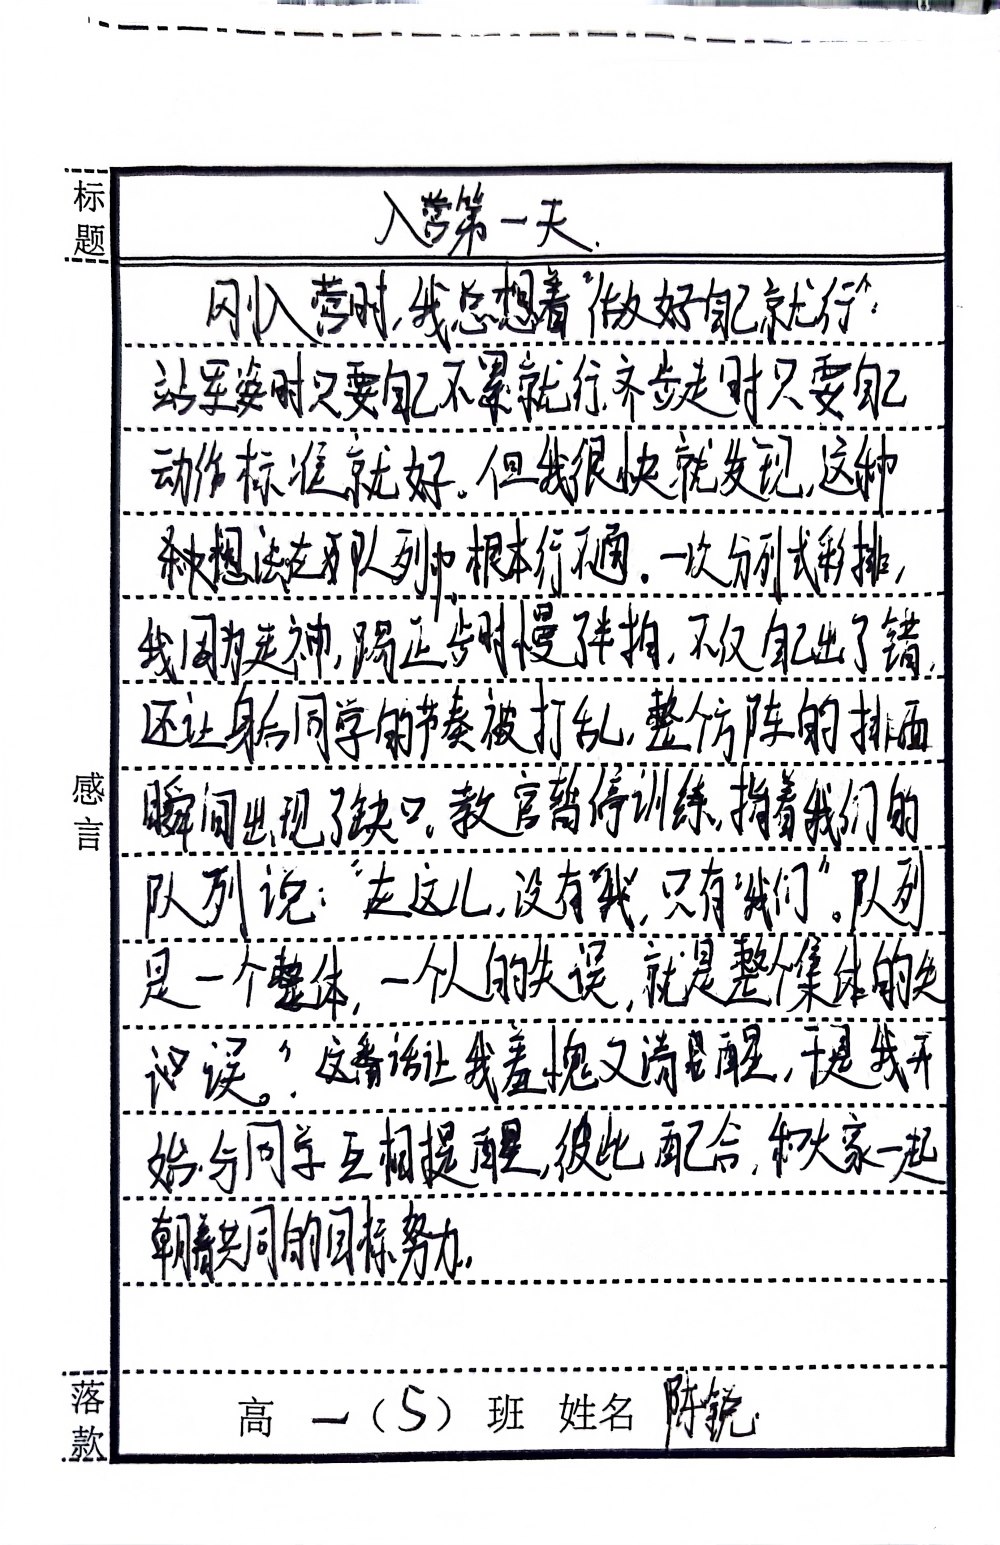 标题
入营第一天.
刚入营时,我总想着“做好自己就行”:
站军姿时只要自己不累就行,齐步走时只要自己
动作标准就好。但我很快就发现,这种
想法在队列中根本行不通。一次分列式彩排,
我因为走神,踢正步时慢了半拍,不仅自己出了错,
还让身后同学的节奏被打乱,整个方阵的排面
瞬间出现了缺口。教官暂停训练,指着我们的
队列说:“在这儿,没有“我”,只有“我们”。队列
是一个整体,一个人的失误,就是整个集体的失
误。”这番话让我羞愧又清醒,于是我开
始与同学互相提醒,彼此配合,和大家一起
朝着共同的目标努力。
感言
落款
高一(5)班 姓名 陈锐